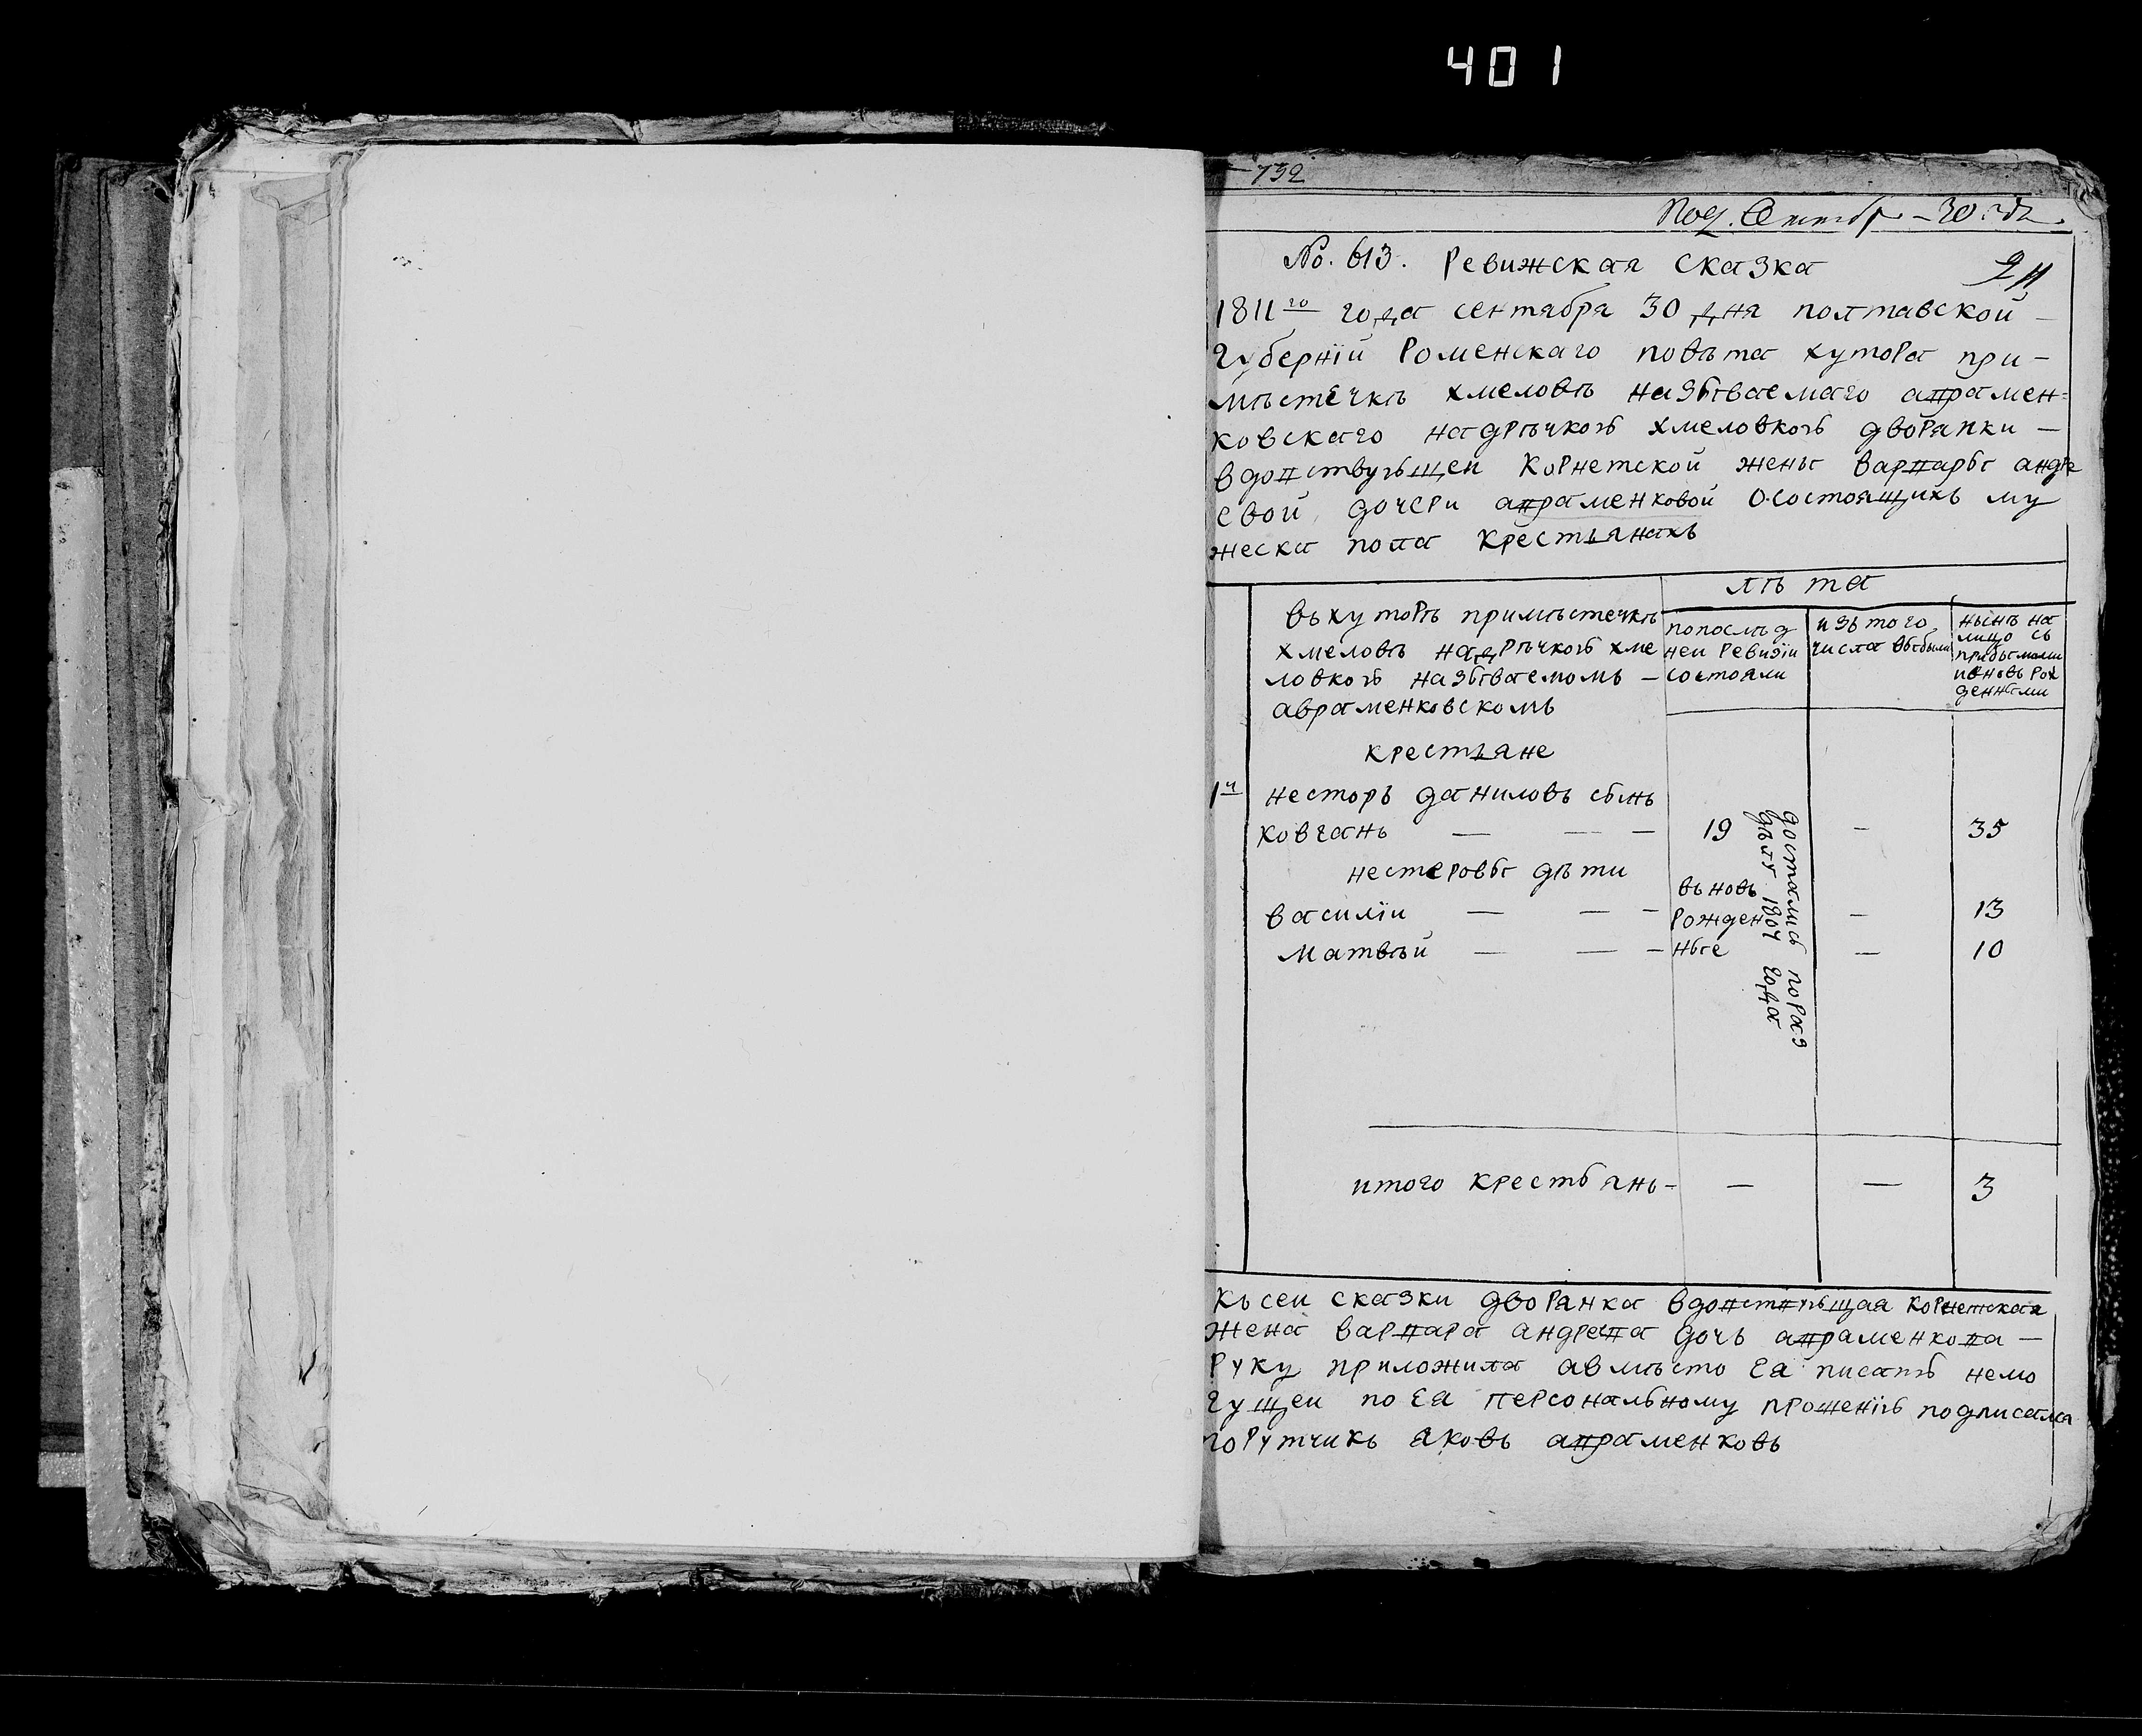 401
732
Под. Октябр - 30 дн.
No. 613. Ревижская сказка
211
1811го года сентября 30 дня полтавской —
губернїи Роменскаго повѣта хутора при-
мѣстечкѣ хмеловѣ называемаго аврамен=
ковскаго надрѣчкою хмеловкою дворянки —
вдовствующеи Корнетской жены варвары андре
евой дочери авраменковой о состоящихъ му
жеска пола крестьянахъ
лѣта
въхуторѣ примѣстечкѣ
хмеловѣ надрѣчкою хме
ловкою называемомъ —
авраменковскомъ
попослѣд
неи ревизїи
состояли
изътого
числа выбыли
нынѣ на
лицо съ
прибылыми
ивновь рож
денными
крестьяне
1й несторъ даниловъ сынъ
ковганъ — — — 19 — 35
нестеровы дѣти
василїи — — — въновь
рожден — 13
матвѣй — — — ные — 10
достались пораз
дѣлу 1804 года
итого крестьянъ - — — 3
Късеи сказки дворянка вдовствующая корнетская
жена варвара андреева дочь авраменкова —
руку приложила авмѣсто ея писать немо
гущеи по ея персональному прошенїю подписался
порутчикъ яковъ авраменковъ